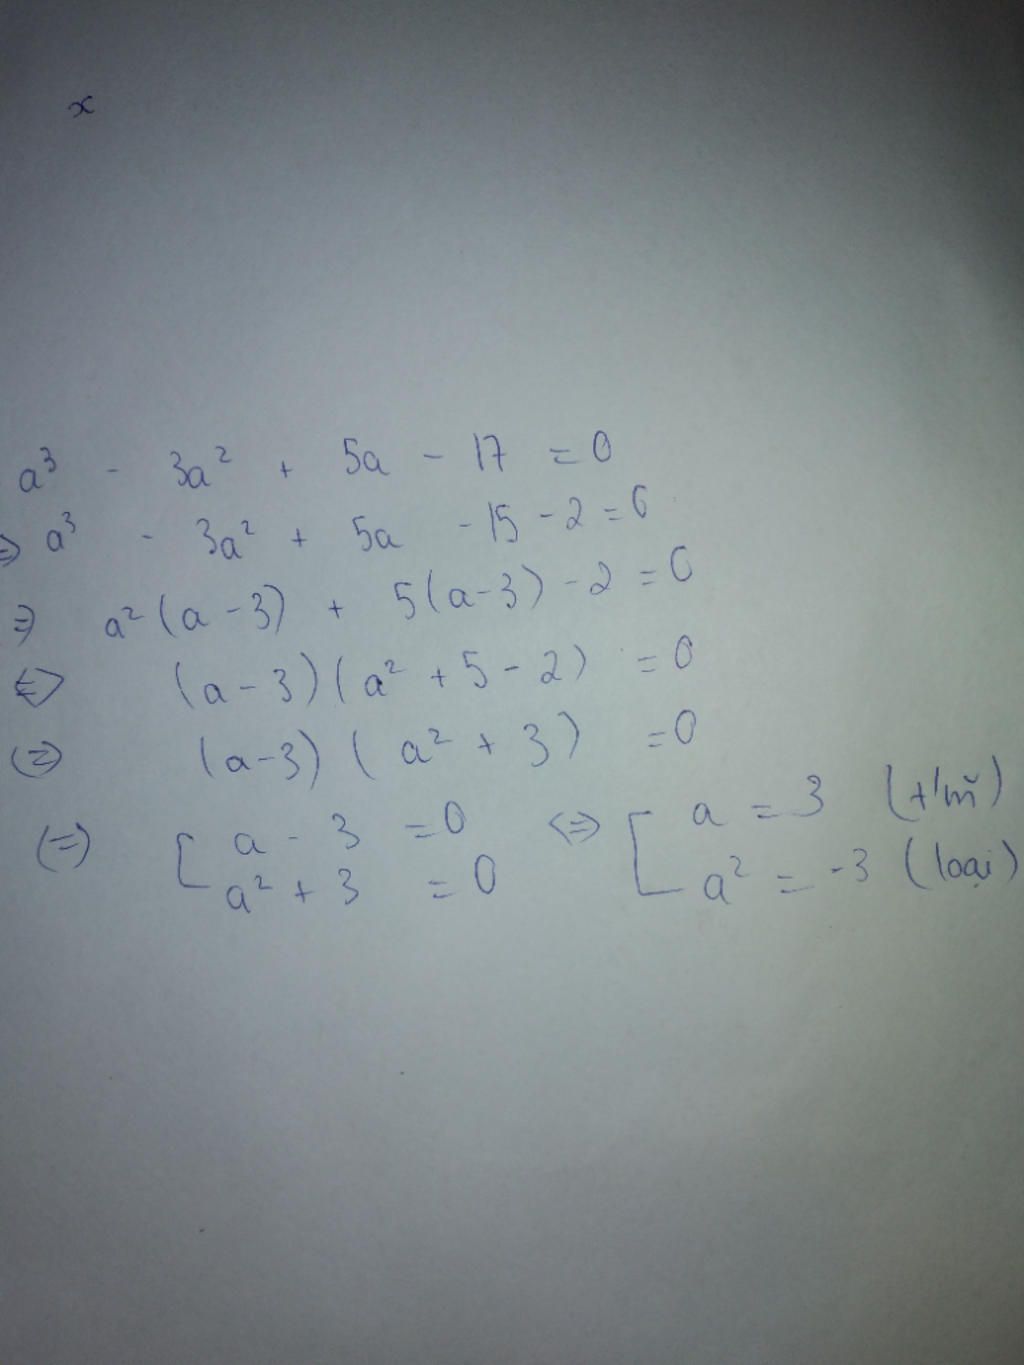 x
a³ - 3a² + 5a - 17 = 0
=> a³ - 3a² + 5a - 15 - 2 = 0
=> a² (a - 3) + 5(a - 3) - 2 = 0
<=> (a - 3) (a² + 5 - 2) = 0
(=) (a - 3) (a² + 3) = 0
(=) [ a - 3 = 0 <=> [ a = 3 (t/m)
a² + 3 = 0 a² = -3 (loại)